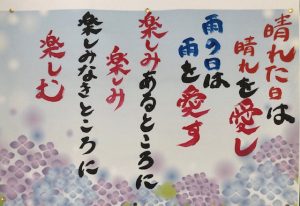 晴れた日は
晴れを愛し
雨の日は
雨を愛す
楽しみあるところに
楽しみ
楽しみなきところに
楽しむ